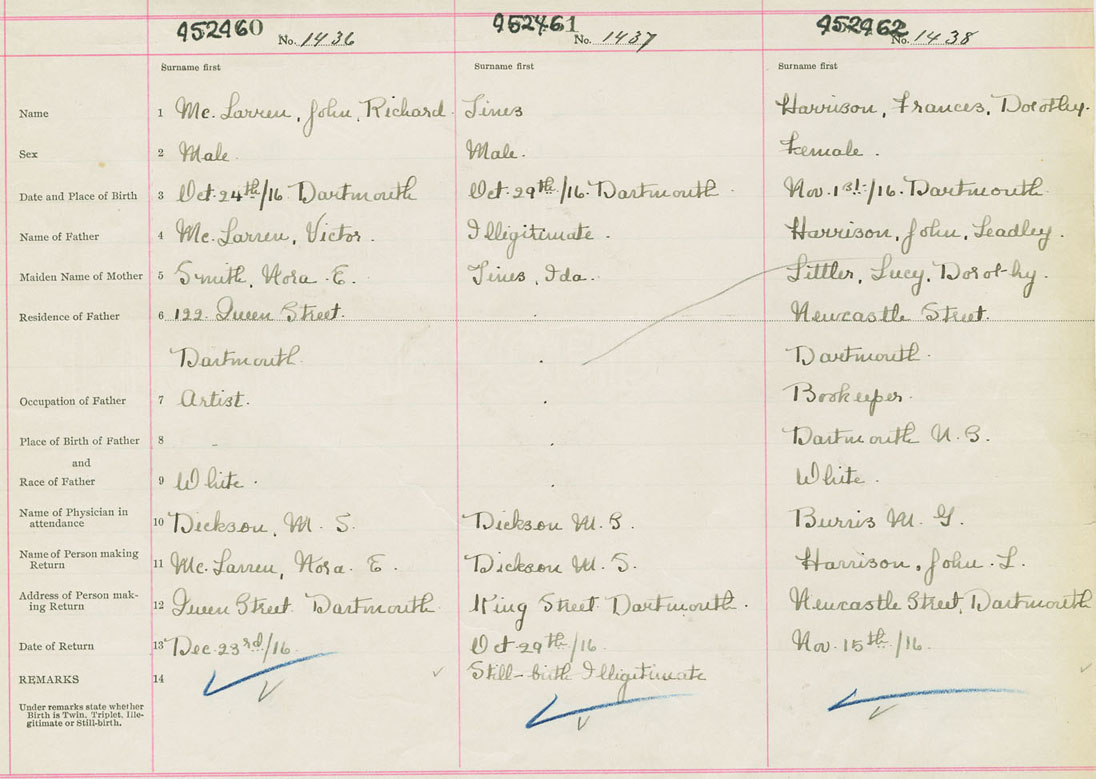 952460 No. 1436 952461 No. 1437 952462 No. 1438
Surname first Surname first Surname first
Name 1 Mc. Larren, John, Richard. Tines Harrison, Frances, Dorothy.
Sex 2 Male. Male. Female.
Date and Place of Birth 3 Oct. 24th/16 Dartmouth Oct. 29th/16. Dartmouth. Nov. 1st/16. Dartmouth.
Name of Father 4 Mc. Larren, Victor. Illigitimate. Harrison, John, Leadley.
Maiden Name of Mother 5 Smith, Nora. E. Tines, Ida. Littler, Lucy, Dorothy.
Residence of Father 6 122. Queen Street. Newcastle Street.
Dartmouth. Dartmouth.
Occupation of Father 7 Artist. Bookeeper.
Place of Birth of Father 8 - Dartmouth N.S.
and
Race of Father 9 White. White.
Name of Physician in
attendance 10 Dickson, M. S. Dickson M. S. Burris M. G.
Name of Person making
Return 11 Mc. Larren, Nora. E. Dickson M. S. Harrison, John. L.
Address of Person mak-
ing Return 12 Queen Street Dartmouth. King Street Dartmouth. Newcastle Street, Dartmouth
Date of Return 13 Dec. 23rd/16. Oct. 29th/16. Nov. 15th/16.
REMARKS 14 Still-birth Illigitimate
Under remarks state whether
Birth is Twin, Triplet, Ille-
gitimate or Still-birth.